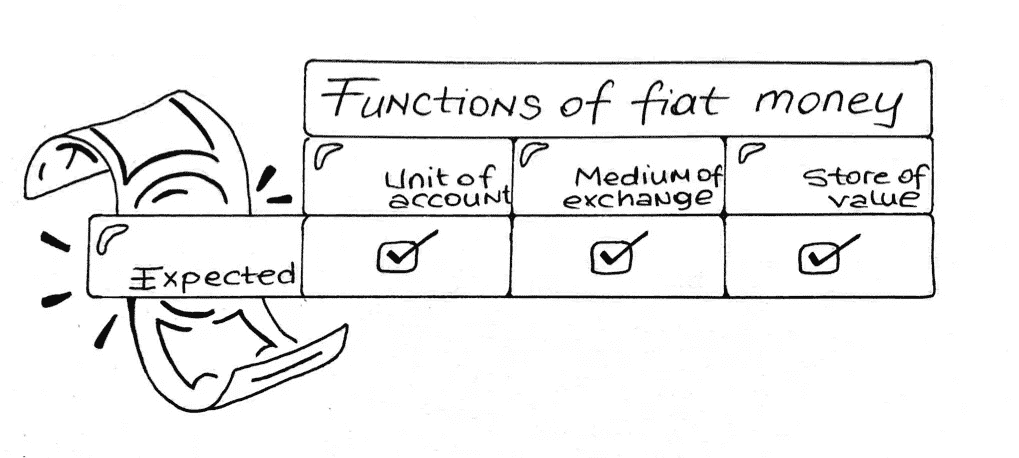 Functions of fiat money
Unit of
account
Medium of
exchange
Store of
value
Expected